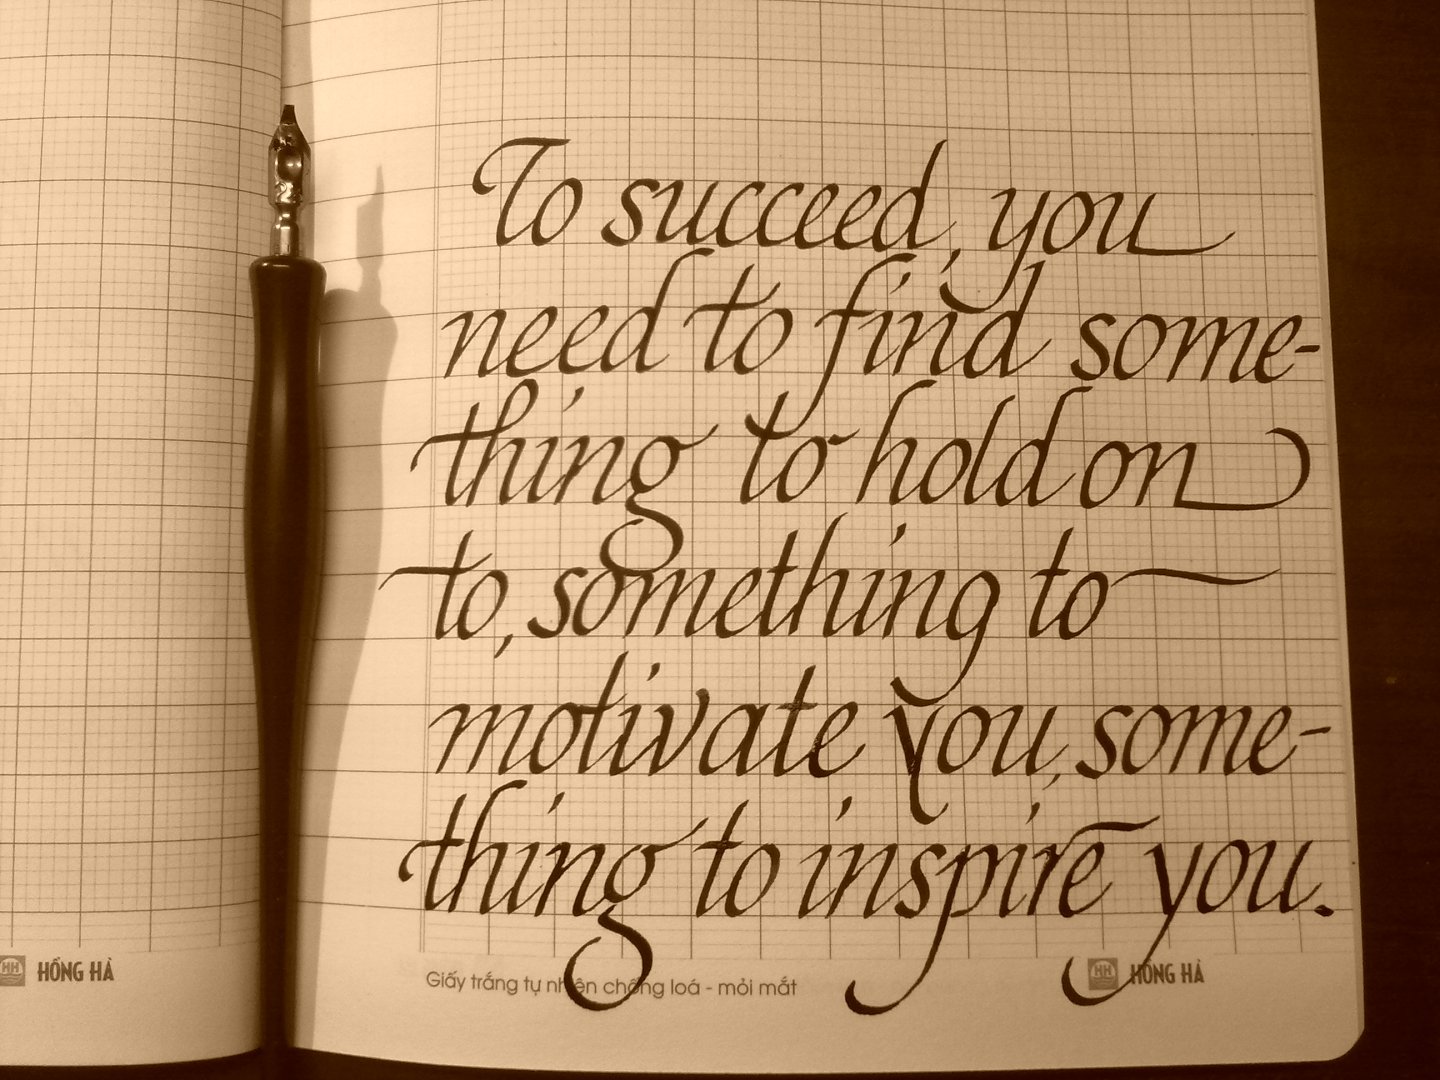 To succeed, you
need to find some-
thing to hold on
to, something to
motivate you, some-
thing to inspire you.
HH HỒNG HÀ
Giấy trắng tự nhiên chống loá - mỏi mắt
HH HỒNG HÀ